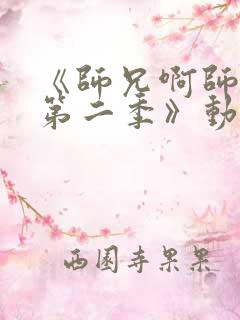 《師兄啊師
第二季》動
西園寺果果